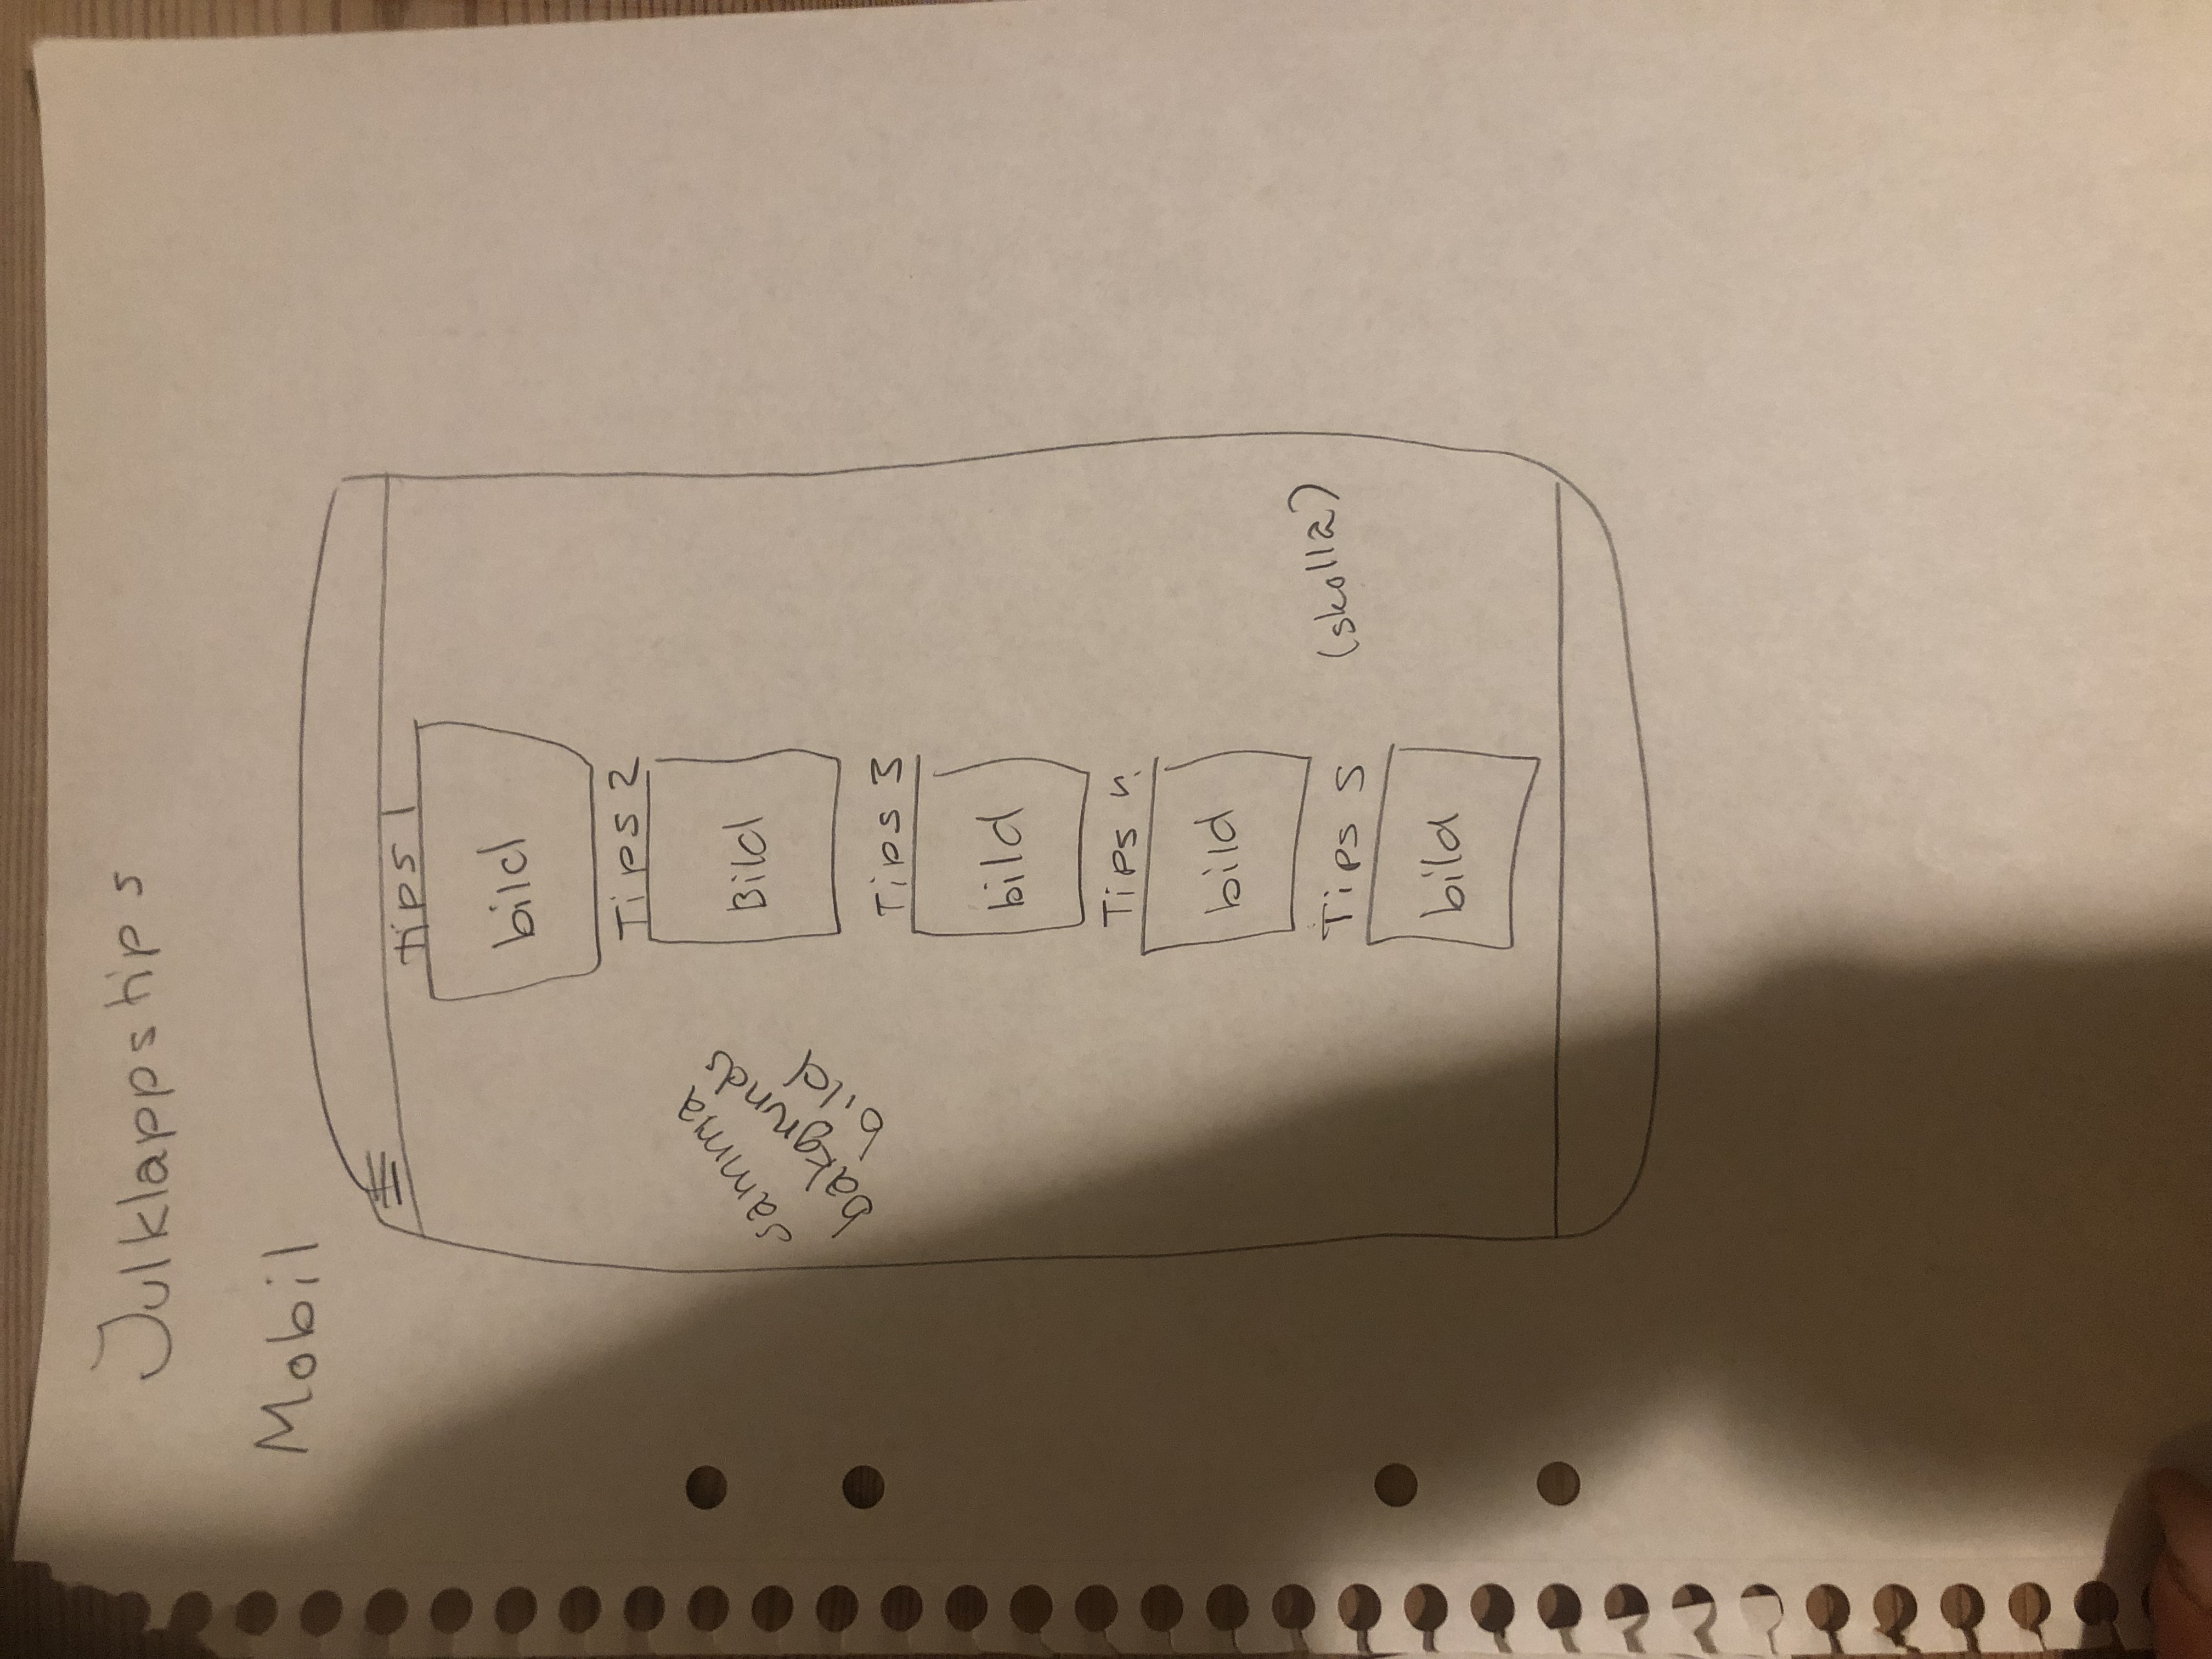 Julklappstips
Mobil
Tips 1
bild
Tips 2
Bild
samma
bakgrunds
bild
Tips 3
bild
Tips 4
bild
Tips 5
bild
(skolla)